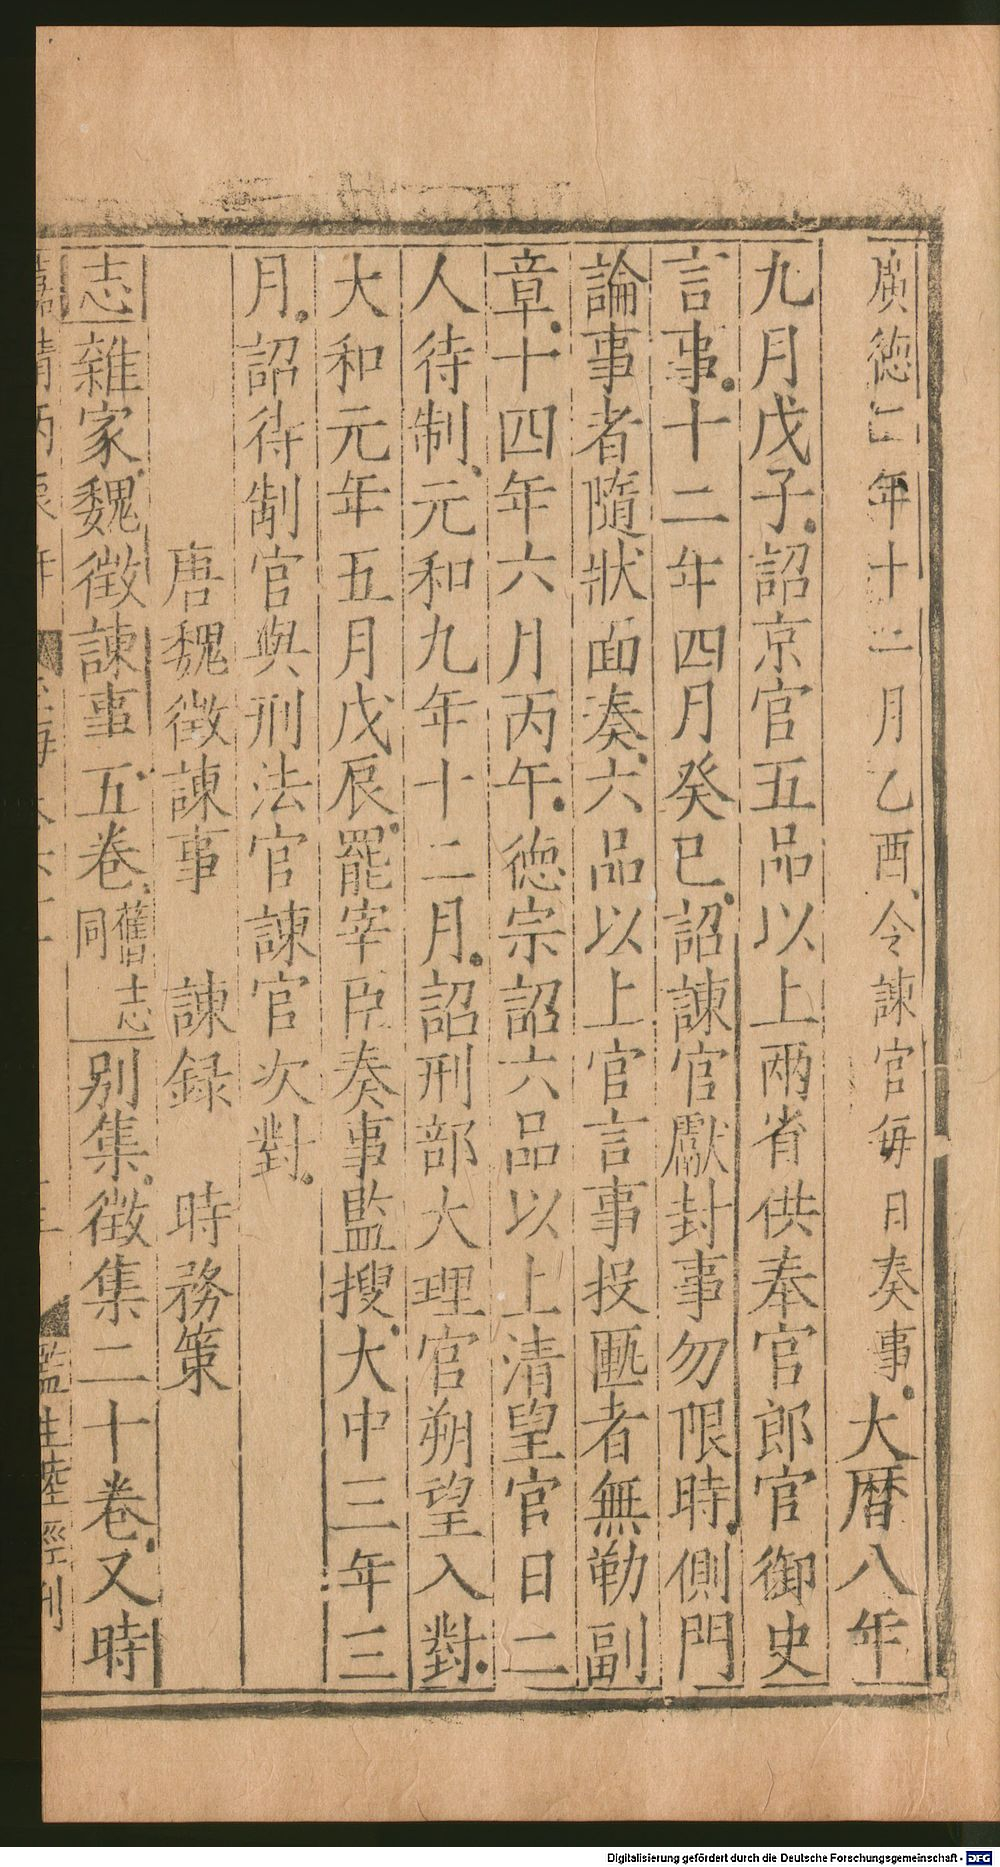 廣徳二年十二月乙酉令諫官每日奏事大暦八年
九月戊子詔京官五品以上兩省供奉官郎官御史
言事十二年四月癸巳詔諫官獻封事勿限時側門
論事者隨狀面奏六品以上官言事投匭者無勒副
章十四年六月丙午徳宗詔六品以上清望官日二
人待制元和九年十二月詔刑部大理官朔望入對
大和元年五月戊辰罷宰臣奏事監搜大中三年三
月詔待制官與刑法官諫官次對
唐魏徴諫事 諫録 時務策
志雜家魏徴諫事五卷舊志同別集徴集二十卷又時
監生陸經刊
Digitalisierung gefördert durch die Deutsche Forschungsgemeinschaft - DFG